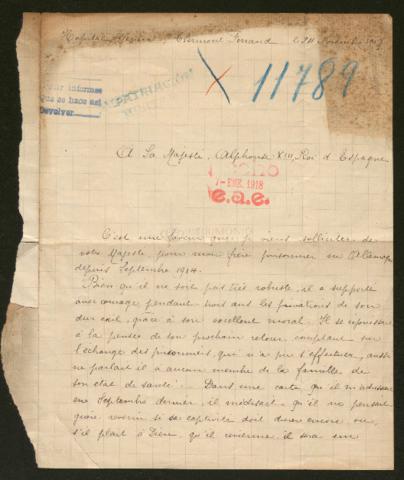 Hopital Clermont Ferrand le 24 Novembre 1917
X 11789
Para informes
Que se hace así
Devolver
REPATRIACION
A Sa Majesté, Alphonse XIII, Roi d'Espagne
7- ENE. 1918
e.a.e.
C'est une faveur que je viens solliciter de
votre Majesté, pour mon frère prisonnier en Allemagne
depuis Septembre 1914.
Bien qu'il ne soit pas très robuste, il a supporté
avec courage pendant trois ans les privations de son
dur exil, grâce à son excellent moral. Il se réjouissait
à la pensée de son prochain retour, comptant sur
l'échange des prisonniers, qui n'a pu s'effectuer, aussi
ne parlait il à aucun membre de la famille de
son état de santé. Dans une carte qu'il m'adressait
en Septembre dernier, il me disait qu'il ne pensait
guère revenir si sa captivité doit durer encore, ou,
s'il plait à Dieu, qu'il revienne, il sera un